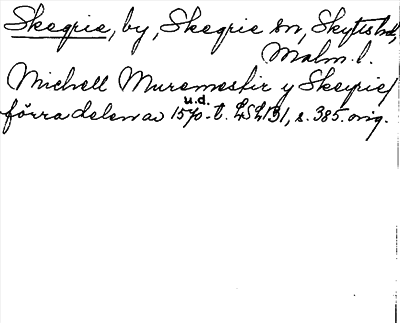 Skegrie, by, Skegrie sn, Skytts hd,
Malm. l.
Michell Muremester y Skeyrie/
u.d.
förra delen av 1570-t. LSL 131, s. 385. orig.